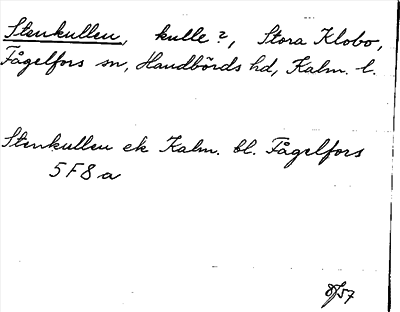 Stenkullen, kulle?, Stora Klobo,
Fågelfors sn, Handbörds hd, Kalm. l.
Stenkullen ek Kalm. bl. Fågelfors
5 F 8 a